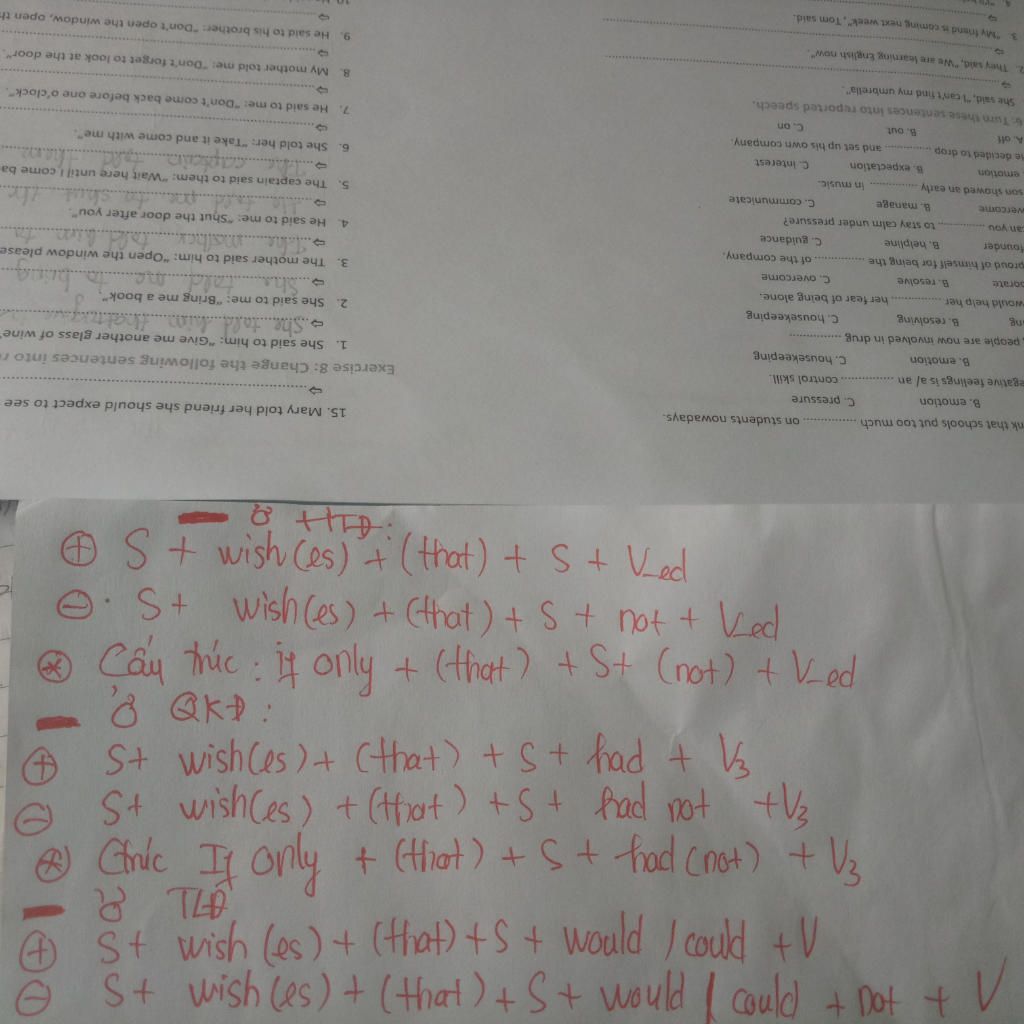 that schools put too much .............. on students nowadays.
B. emotion C. pressure
feelings is a/ an .............. control skill.
B. emotion C. housekeeping
people are now involved in drug ..............
B. resolving C. housekeeping
would help her .............. her fear of being alone.
B. resolve C. overcome
proud of himself for being the .............. of the company.
founder B. helpline C. guidance
can you .............. to stay calm under pressure?
B. manage C. communicate
son showed an early .............. in music.
emotion B. expectation C. interest
decided to drop .............. and set up his own company.
A. off B. out C. on
6: Turn these sentences into reported speech.
She said, "I can't find my umbrella".
2. They said, "We are learning English now".
3. "My friend is coming next week", Tom said.
15. Mary told her friend she should expect to see
Exercise 8: Change the following sentences into
1. She said to him: "Give me another glass of wine"
She told him
2. She said to me: "Bring me a book".
She told me to bring
3. The mother said to him: "Open the window please
The mother told him to
4. He said to me: "Shut the door after you".
He told me to shut the
5. The captain said to them: "Wait here until I come
The captain told them
6. She told her: "Take it and come with me".
7. He said to me: "Don't come back before one o'clock".
8. My mother told me: "Don't forget to look at the door".
9. He said to his brother: "Don't open the window, open
– Ở HTĐ:
⊕ S + wish(es) + (that) + S + V_ed
⊖ S + wish(es) + (that) + S + not + V_ed
⊛ Cấu trúc: If only + (that) + S + (not) + V_ed
– Ở QKĐ:
⊕ S + wish(es) + (that) + S + had + V3
⊖ S + wish(es) + (that) + S + had not + V3
⊛ Ctrúc If only + (that) + S + had (not) + V3
– Ở TLĐ
⊕ S + wish (es) + (that) + S + would / could + V
⊖ S + wish (es) + (that) + S + would / could + not + V